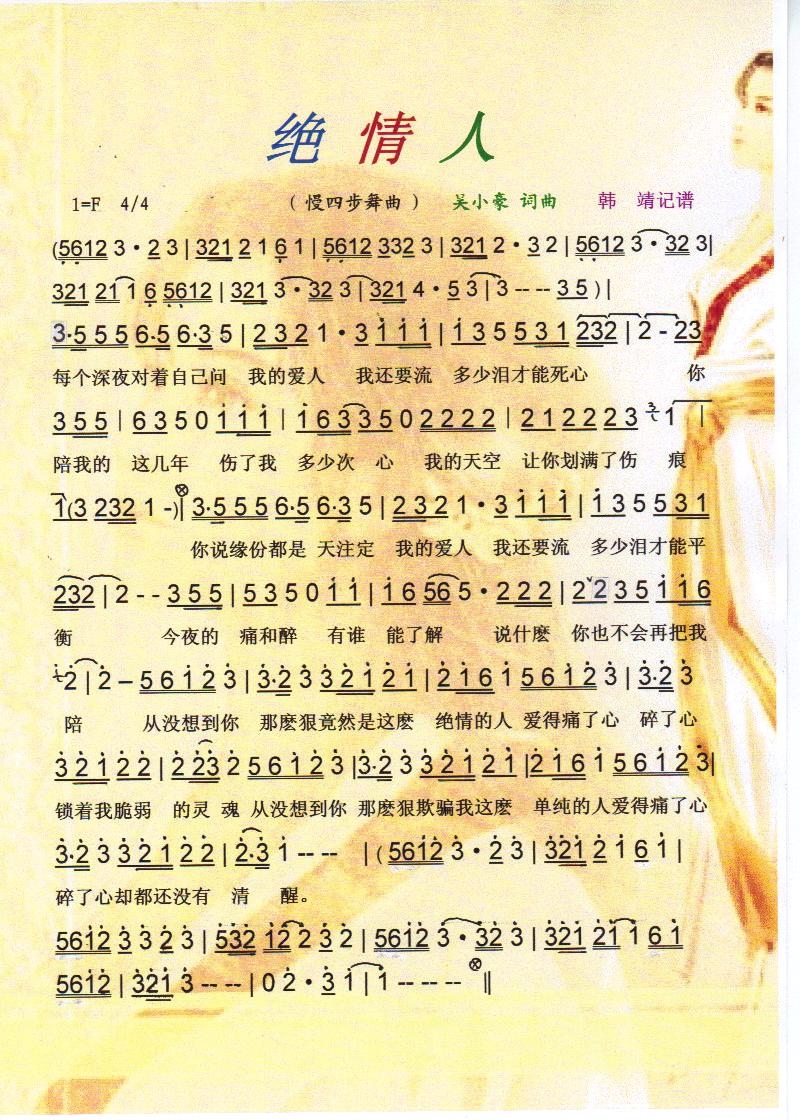 绝情人
1=F 4/4 （慢四步舞曲） 吴小豪 词曲 韩 靖记谱
(5612 3·2 3 | 321 2 1 6 1 | 5612 332 3 | 321 2·3 2 | 5612 3·32 3|
321 21 1 6 5612 | 321 3·32 3 | 321 4·5 3 | 3 -- -- 3 5 ) |
3·5 5 5 6·5 6·3 5 | 2 3 2 1·3 1 1 1 | 1 3 5 5 3 1 232 | 2 - 23
每个深夜对着自己问 我的爱人 我还要流 多少泪才能死心 你
3 5 5 | 6 3 5 0 1 1 1 | 1 6 3 3 5 0 2 2 2 2 | 2 1 2 2 2 3 1 |
陪我的 这几年 伤了我 多少次 心 我的天空 让你划满了伤 痕
1(3 232 1 -)| 3·5 5 5 6·5 6·3 5 | 2 3 2 1·3 1 1 1 | 1 3 5 5 3 1
你说缘份都是 天注定 我的爱人 我还要流 多少泪才能平
232 | 2 - - 3 5 5 | 5 3 5 0 1 1 | 1 6 56 5·2 2 2 | 2 2 3 5 1 1 6
衡 今夜的 痛和醉 有谁 能了解 说什麽 你也不会再把我
2 | 2 – 5 6 1 2 3 | 3·2 3 3 2 1 2 1 | 2 1 6 1 5 6 1 2 3 | 3·2 3
陪 从没想到你 那麽狠竟然是这麽 绝情的人 爱得痛了心 碎了心
3 2 1 2 2 | 2 23 2 5 6 1 2 3 |3·2 3 3 2 1 2 1 |2 1 6 1 5 6 1 2 3|
锁着我脆弱 的灵 魂 从没想到你 那麽狠欺骗我这麽 单纯的人爱得痛了心
3·2 3 3 2 1 2 2 | 2·3 1 -- -- | ( 5612 3·2 3 | 321 2 1 6 1 |
碎了心却都还没有 清 醒。
5612 3 3 2 3 | 532 12 2 3 2 | 5612 3·32 3 | 321 21 1 6 1
5612 | 321 3 -- -- | 0 2·3 1 | 1 -- -- -- ‖